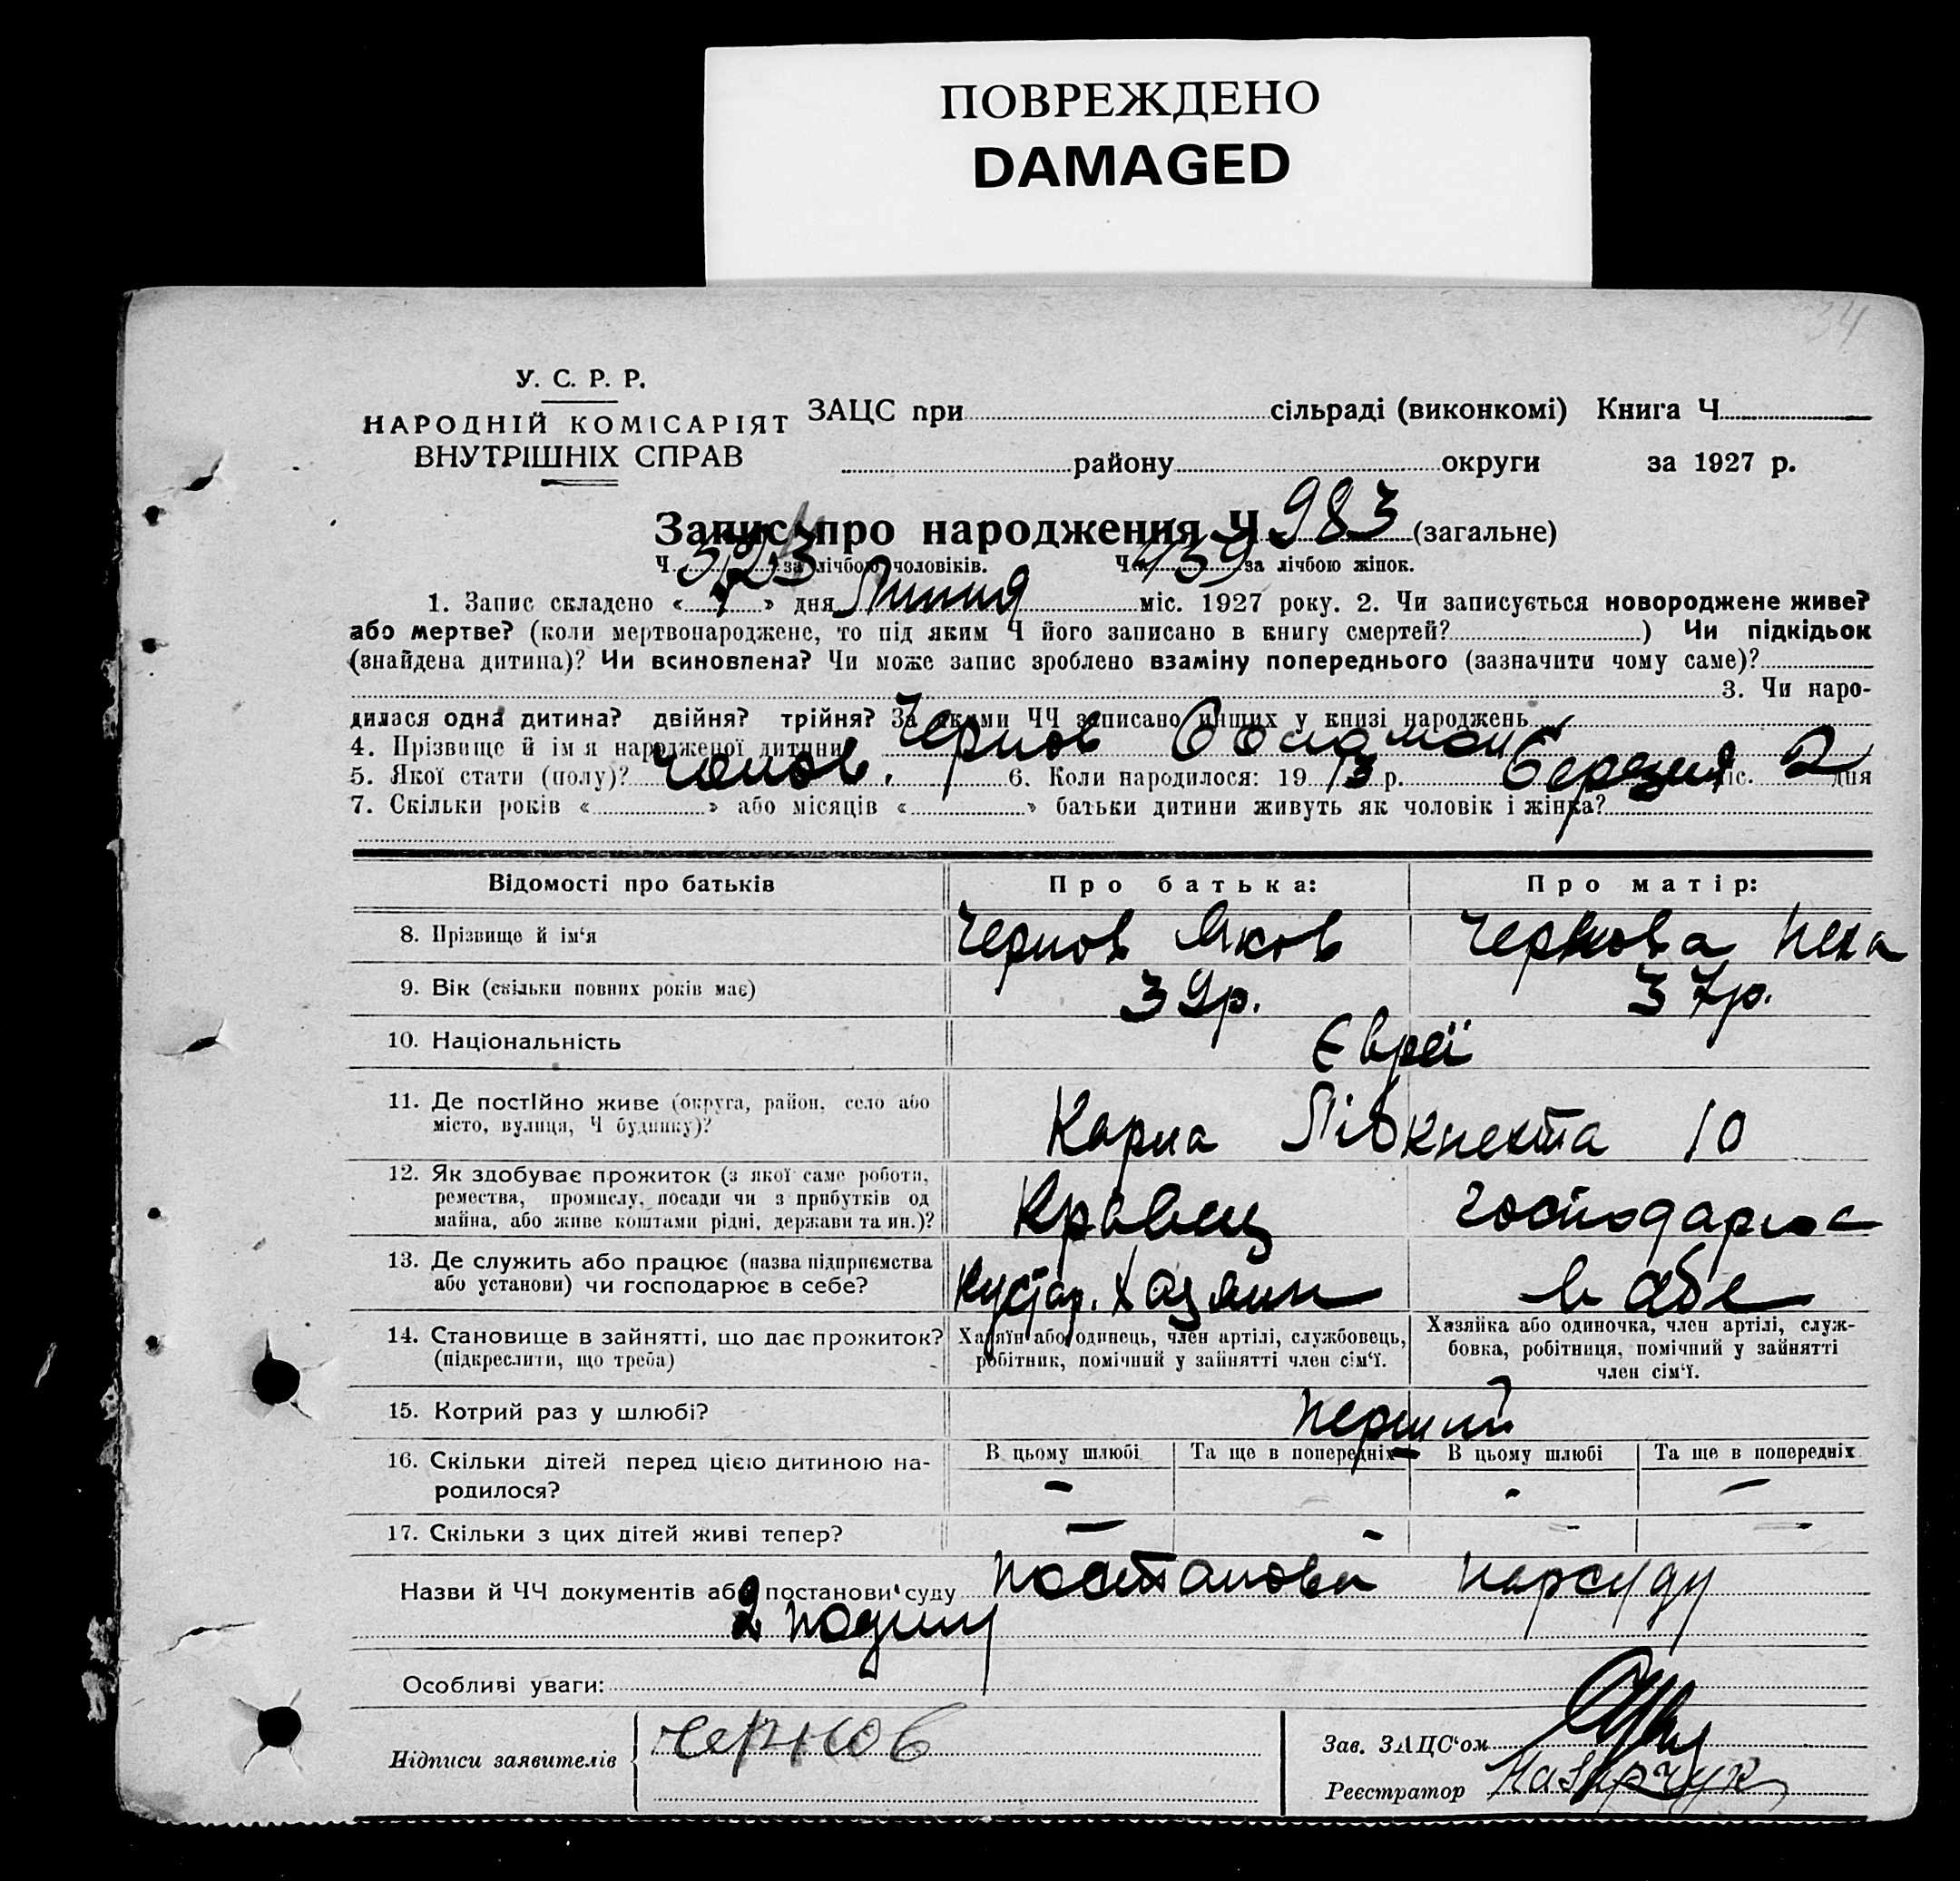 ПОВРЕЖДЕНО
DAMAGED
34
У. С. Р. Р.
НАРОДНІЙ КОМІСАРІЯТ
ВНУТРІШНІХ СПРАВ
ЗАЦС при сільраді (виконкомі) Книга Ч
району округи за 1927 р.
Запис про народження Ч 983 (загальне)
Ч за лічбою чоловіків. Ч 439 за лічбою жінок.
1. Запис складено « 7 » дня Липня міс. 1927 року. 2. Чи записується новороджене живе?
або мертве? (коли мертвонароджене, то під яким Ч його записано в книгу смертей? ) Чи підкідьок
(знайдена дитина)? Чи всиновлена? Чи може запис зроблено взаміну попереднього (зазначити чому саме)?
3. Чи наро-
дилася одна дитина? двійня? трійня? За якими ЧЧ записано инших у книзі народжень
4. Прізвище й імя народженої дитини Чернов
5. Якої стати (полу)? чолов. 6. Коли народилося: 19 13 р. березня міс. 2 дня
7. Скільки років « » або місяців « » батьки дитини живуть як чоловік і жінка?
Відомості про батьків Про батька: Про матір:
8. Прізвище й ім'я Чернов Яков Чернова
9. Вік (скільки повних років має) 39р. 37р.
10. Національність Євреї
11. Де постійно живе (округа, район, село або
місто, вулиця, Ч будинку)? Карла Лібкнехта 10
12. Як здобуває прожиток (з якої саме роботи,
ремества, промислу, посади чи з прибутків од
майна, або живе коштами рідні, держави та ин.)? Кравец господарює
13. Де служить або працює (назва підприємства
або установи) чи господарює в себе? Кустар. Хазяин в себе
14. Становище в зайнятті, що дає прожиток?
(підкреслити, що треба)
Хазяїн або одинець, член артілі, службовець,
робітник, помічний у зайнятті член сім'ї.
Хазяйка або одиночка, член артілі, служ-
бовка, робітниця, помічний у зайнятті
член сім'ї.
15. Котрий раз у шлюбі? перший
16. Скільки дітей перед цією дитиною на-
родилося?
В цьому шлюбі Та ще в попередніх В цьому шлюбі Та ще в попередніх
- - -
17. Скільки з цих дітей живі тепер? - - - -
Назви й ЧЧ документів або постанови суду постанова нарсуду
2
Особливі уваги:
Підписи заявителів Чернов
Зав. ЗАЦС'ом
Реєстратор Назарчук